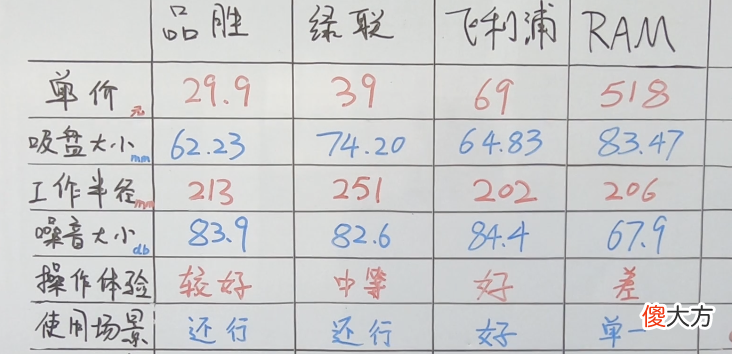 品胜 绿联 飞利浦 RAM
单价元 29.9 39 69 518
吸盘大小mm 62.23 74.20 64.83 83.47
工作半径mm 213 251 202 206
噪音大小db 83.9 82.6 84.4 67.9
操作体验 较好 中等 好 差
使用场景 还行 还行 好 单一
傻大方